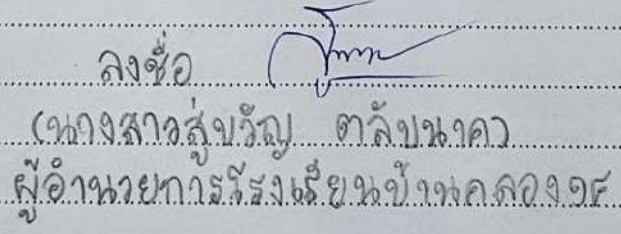 ลงชื่อ
(นางสาวสู่ขวัญ ตลับนาค)
ผู้อำนวยการโรงเรียนบ้านคลอง๑๙